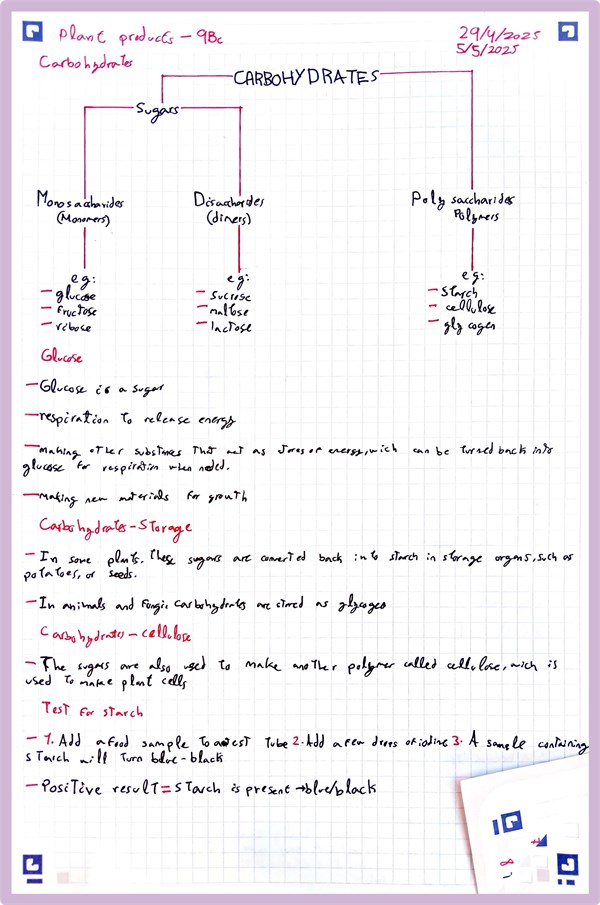 Plant products - 9Bc
29/4/2025
5/5/2025
Carbohydrates
CARBOHYDRATES
Sugars
Monosaccharides
(Monomers)
Disaccharides
(dimers)
Poly saccharides
Polymers
eg:
- glucose
- fructose
- ribose
eg:
- sucrose
- maltose
- lactose
eg:
- starch
- cellulose
- gly cogen
Glucose
- Glucose is a sugar
- respiration to release energy
- making other substances that act as stores of energy, wich can be turned back into
glucose for respiration when needed.
- making new materials for growth
Carbohydrates - Storage
- In some plants, these sugars are converted back into starch in storage organs, such as
potatoes, or seeds.
- In animals and fungi, carbohydrates are stored as glycogen
Carbohydrates - cellulose
- The sugars are also used to make another polymer called cellulose, wich is
used to make plant cells
Test for starch
- 1. Add a food sample to a test tube 2. Add a few drops of iodine 3. A sample containing
starch will turn blue-black
- Positive result = starch is present → blue/black